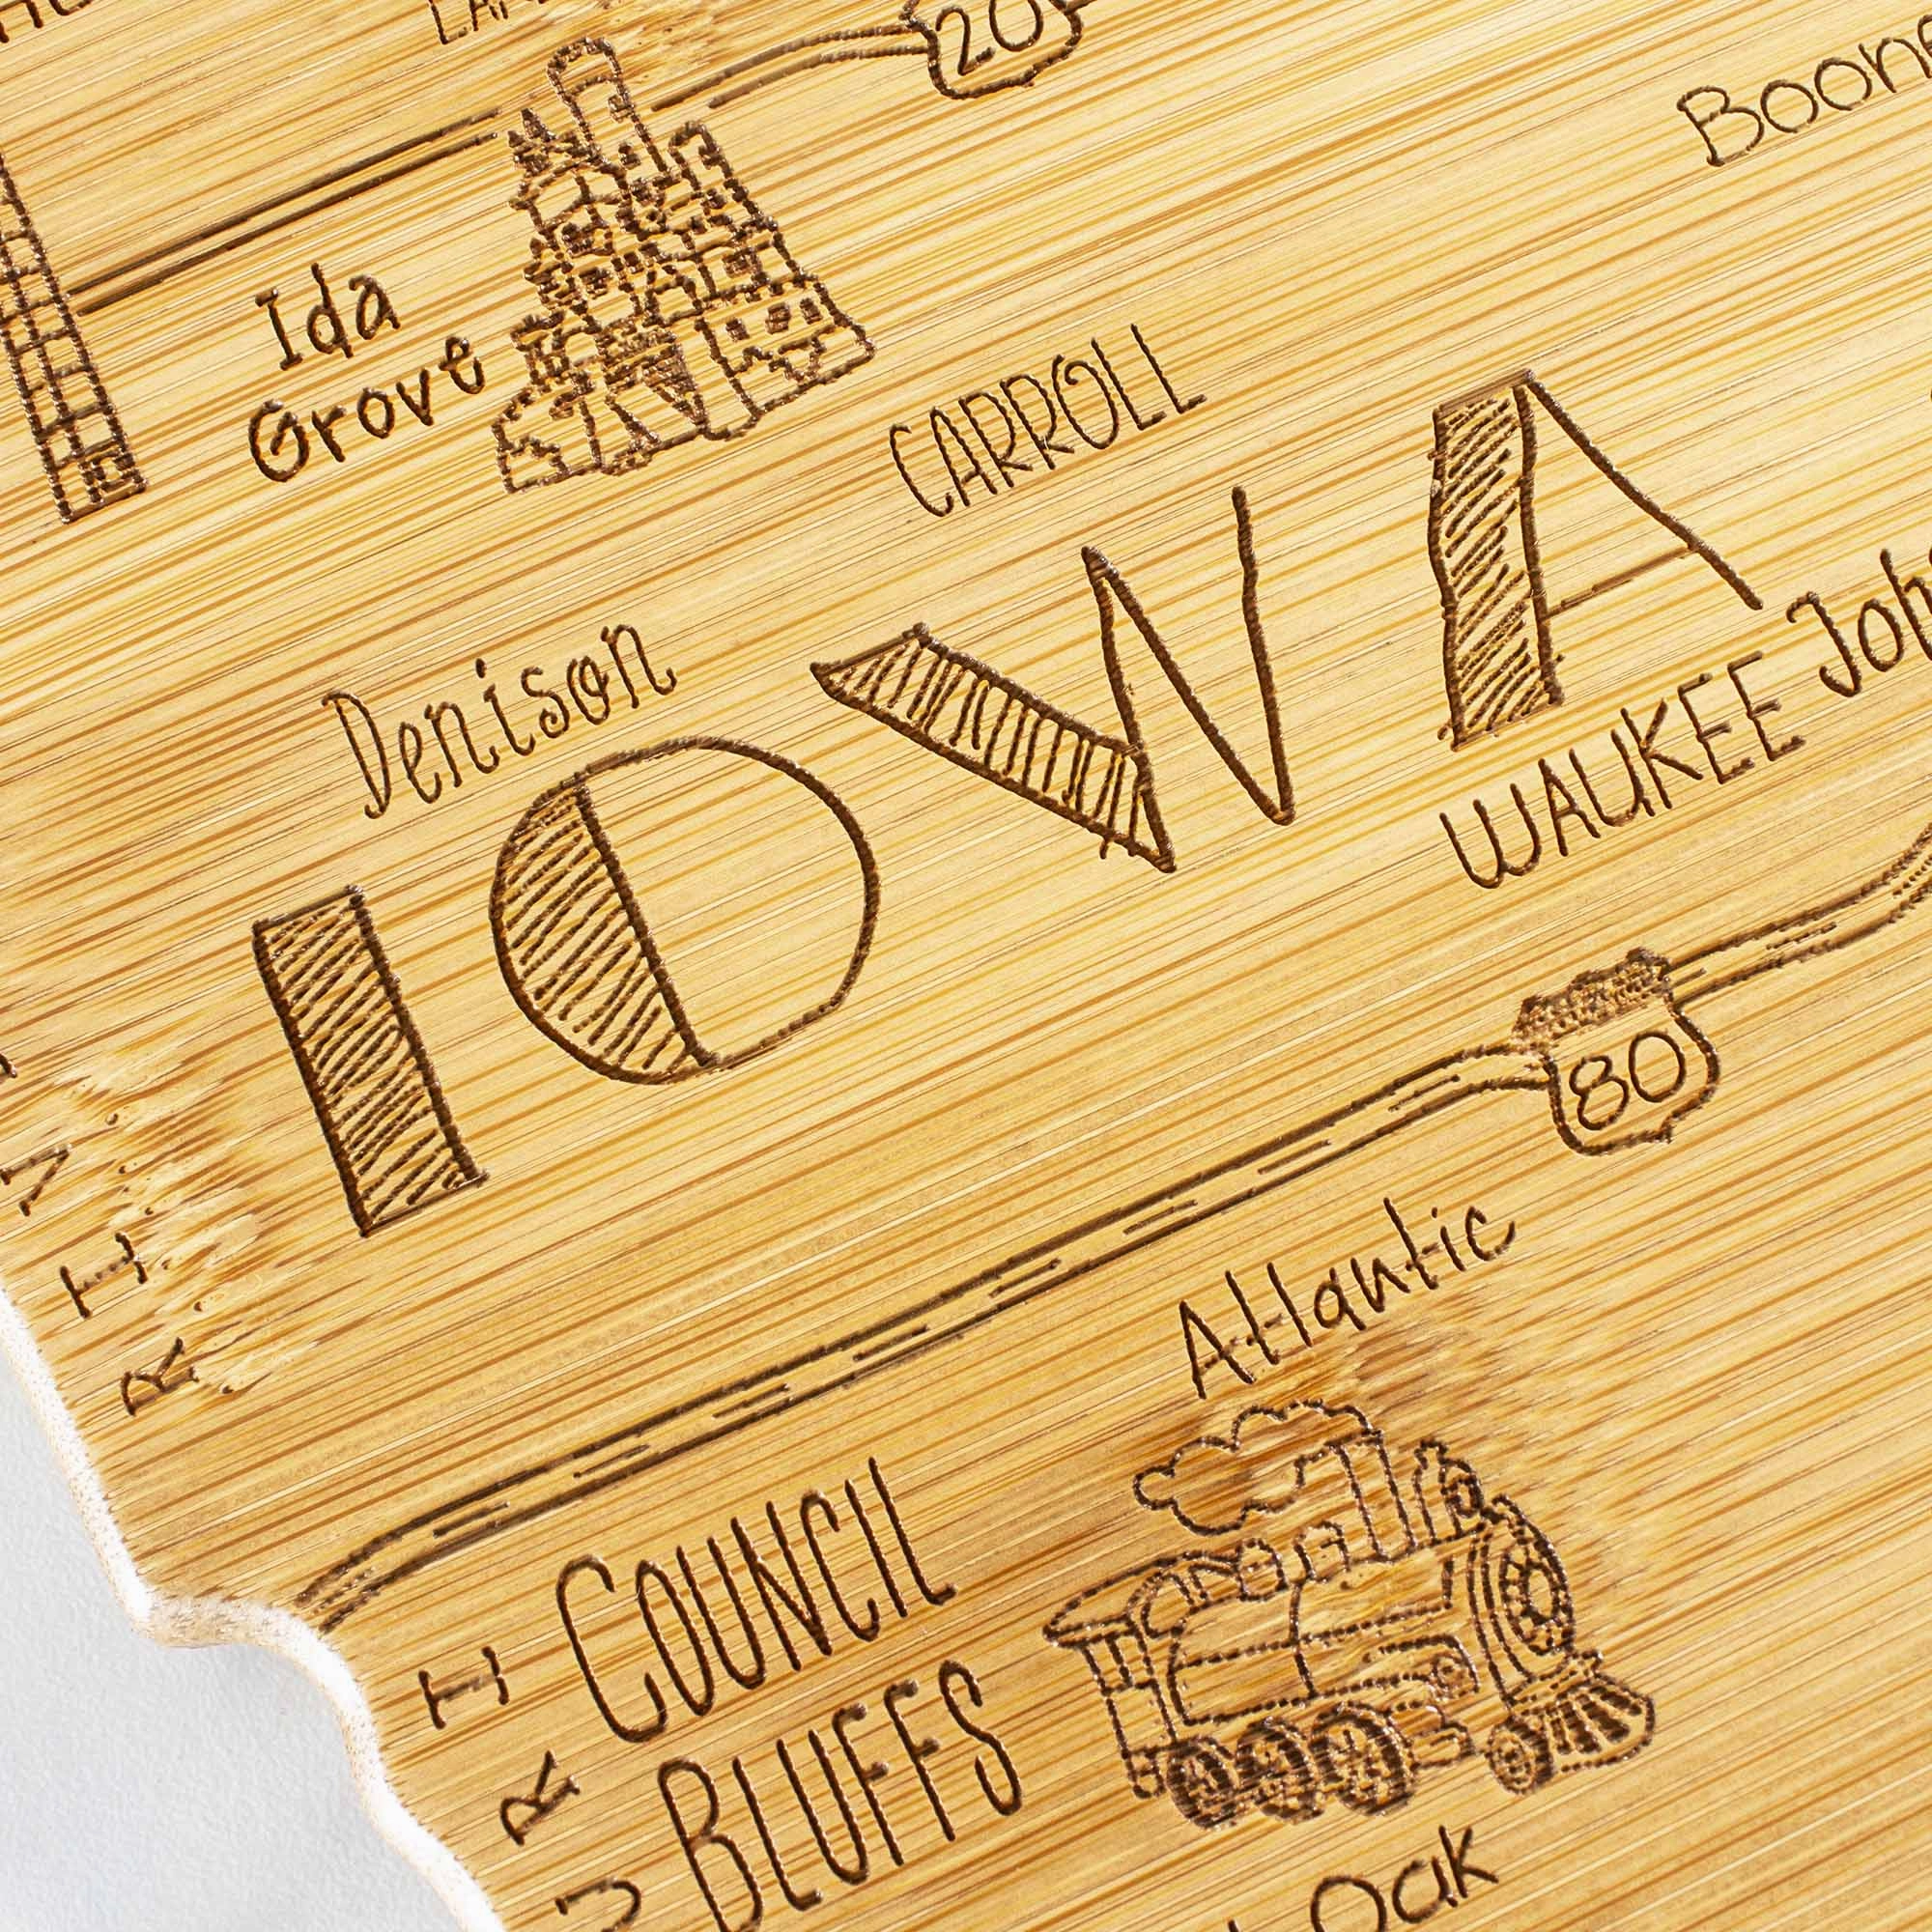 20
Boone
Ida
Grove
CARROLL
Denison
IOWA
Joh
WAUKEE
80
Atlantic
COUNCIL
BLUFFS
Oak